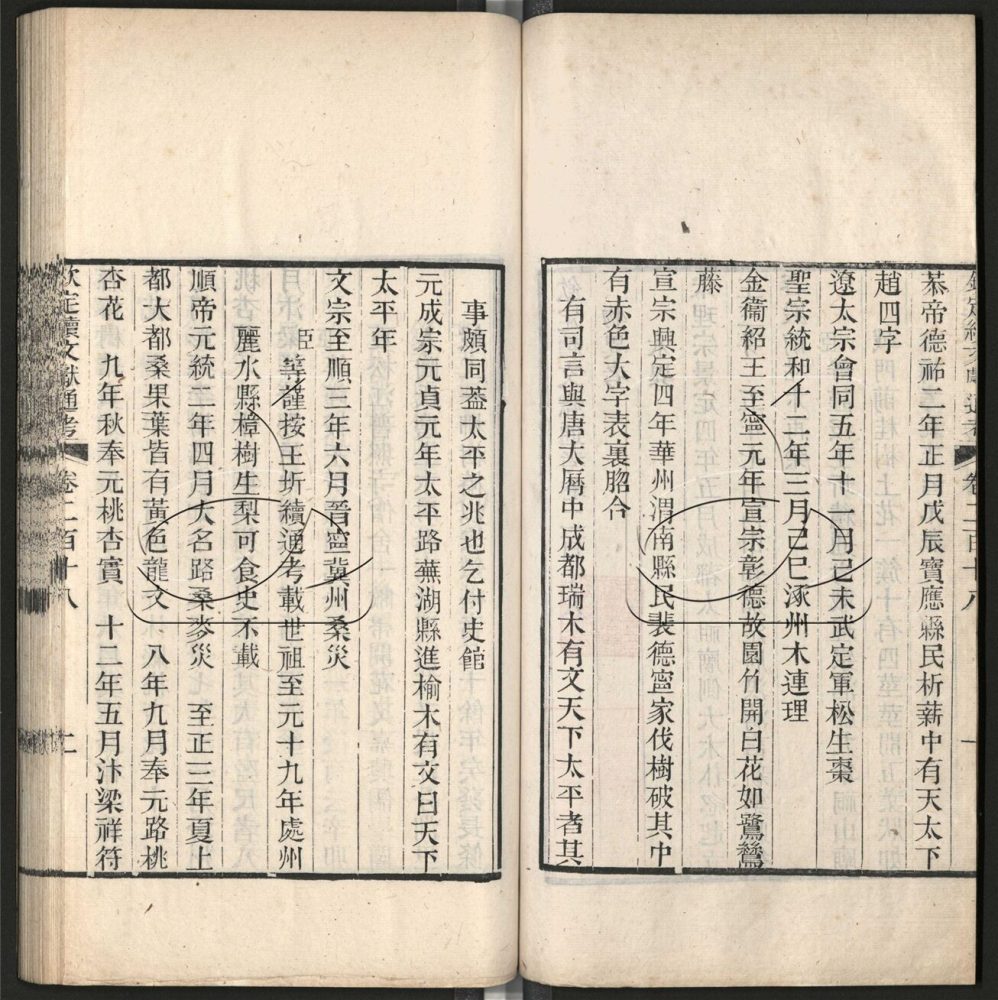 恭帝德祐二年正月戊辰寶應縣民析薪中有天太下
趙四字
遼太宗會同五年十一月己未武定軍松生棗
聖宗統和十二年三月己巳涿州木連理
金衞紹王至寧元年宣宗彰德故園竹開白花如鷺鷥
藤
宣宗興定四年華州渭南縣民裴德寧家伐樹破其中
有赤色大字表裏脗合
有司言與唐大曆中成都瑞木有文天下太平者其
事頗同葢太平之兆也乞付史館
元成宗元貞元年太平路蕪湖縣進榆木有文曰天下
太平年
文宗至順三年六月晉寧冀州桑災
臣等謹按王圻續通考載世祖至元十九年處州
麗水縣樟樹生梨可食史不載
順帝元統二年四月大名路桑麥災 至正三年夏上
都大都桑果葉皆有黃色龍文 八年九月奉元路桃
杏花 九年秋奉元桃杏實 十二年五月汴梁祥符
欽定續文獻通考 卷二百十八 二